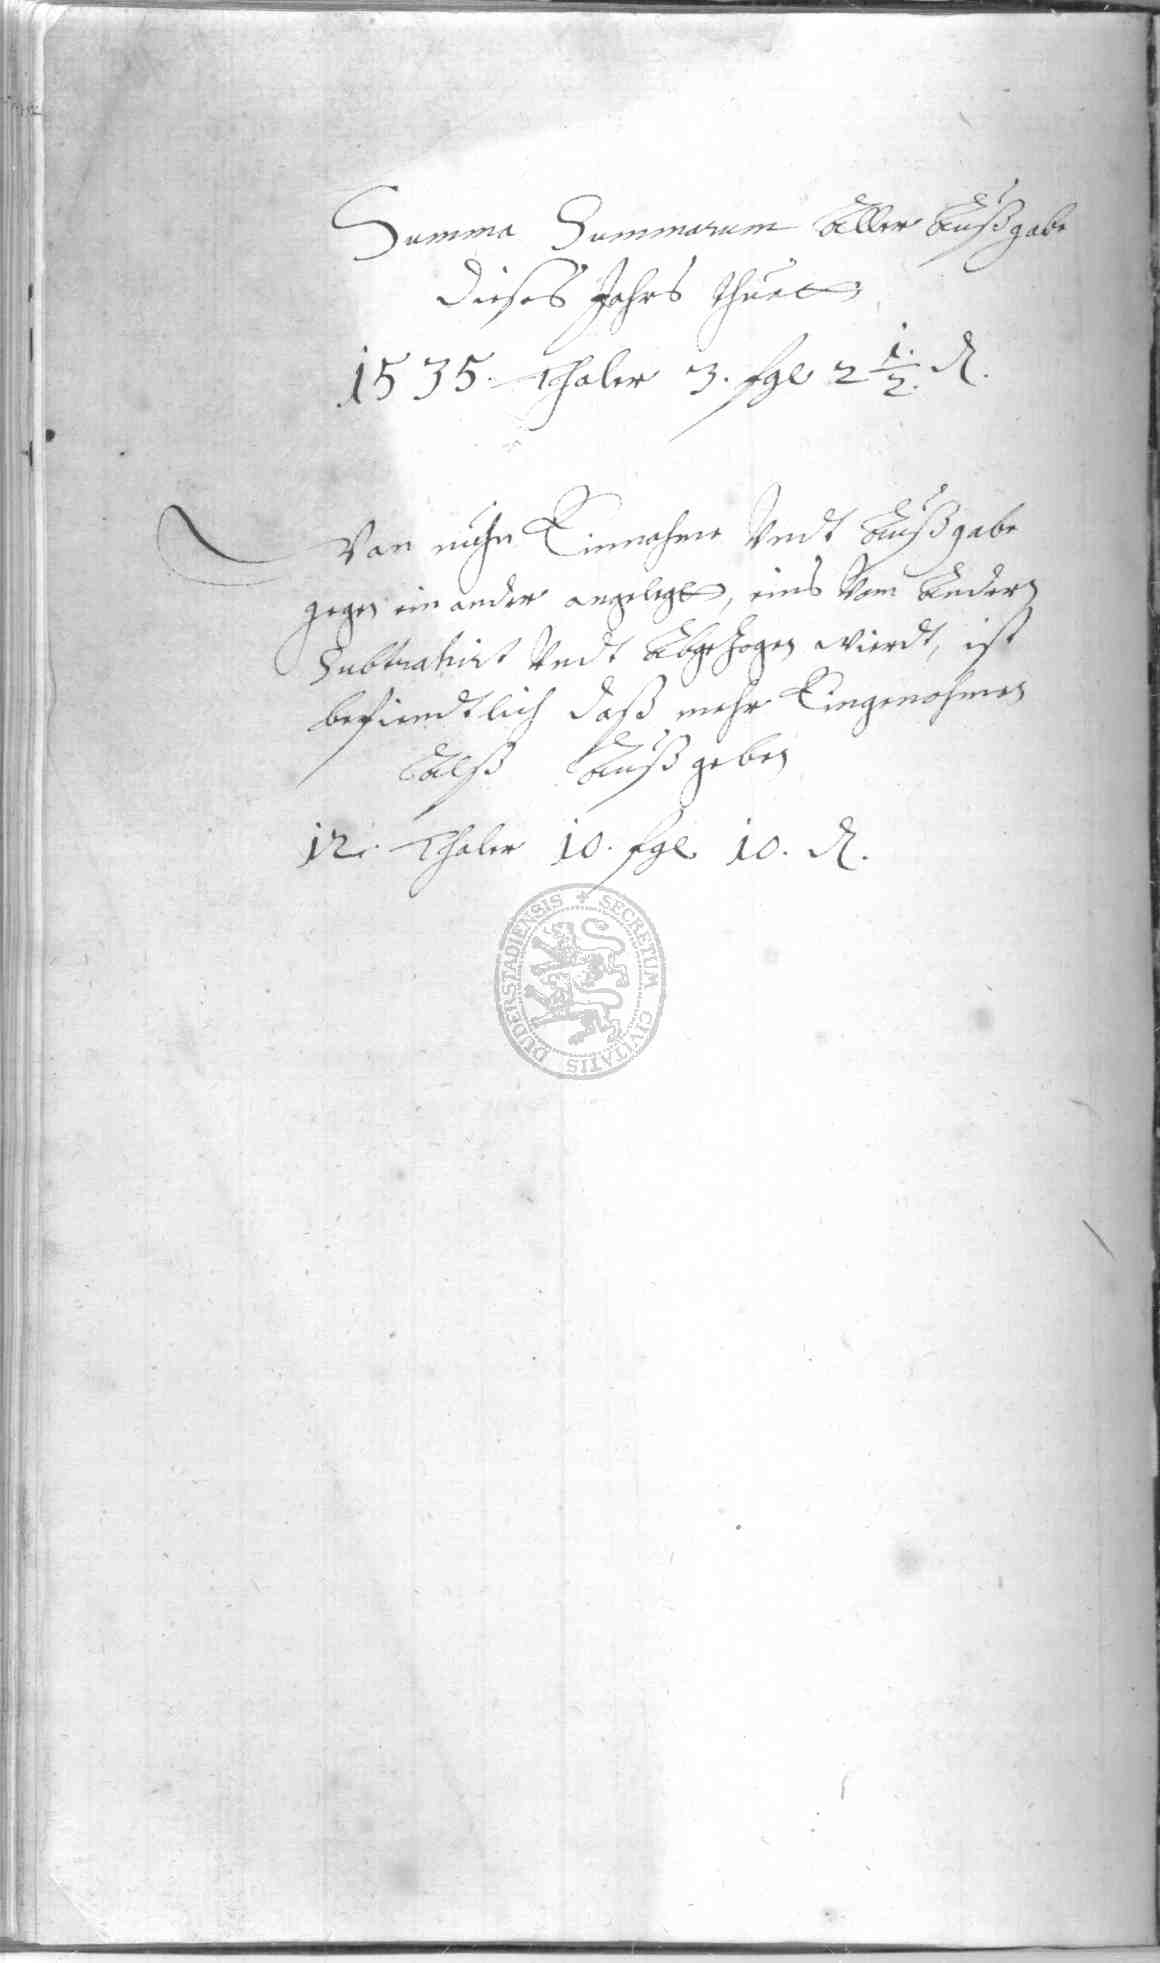 Summa Summarum Aller Außgabe
dieses Jahrs thuett
1535. Thaler 3. sgl 2 1/2. d.
Wan nuhn Einnahme Undt Außgabe
gegen ein ander angelegtt, eins Vom Andern
Subtrahirt Undt Abgezogen wierdt, ist
befiendtlich daß mehr Eingenohmen
Alß Außgeben
12. Thaler 10. sgl 10. d.
SECRETUM CIVITATIS DUDERSTADIENSIS